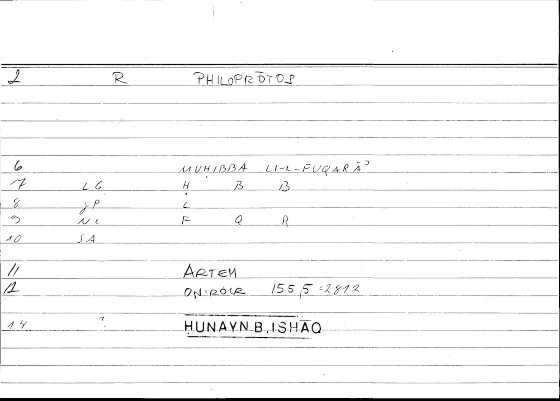 2 R PHILOPRŌTOS
6 MUḤIBBA LI-L-FUQARĀʾ
7 LG Ḥ B B
8 JP L
9 NC F Q R
10 SA
11 ARTEM
12 ONIROCR 155,5 = 2812
14 HUNAYN B. ISHĀQ